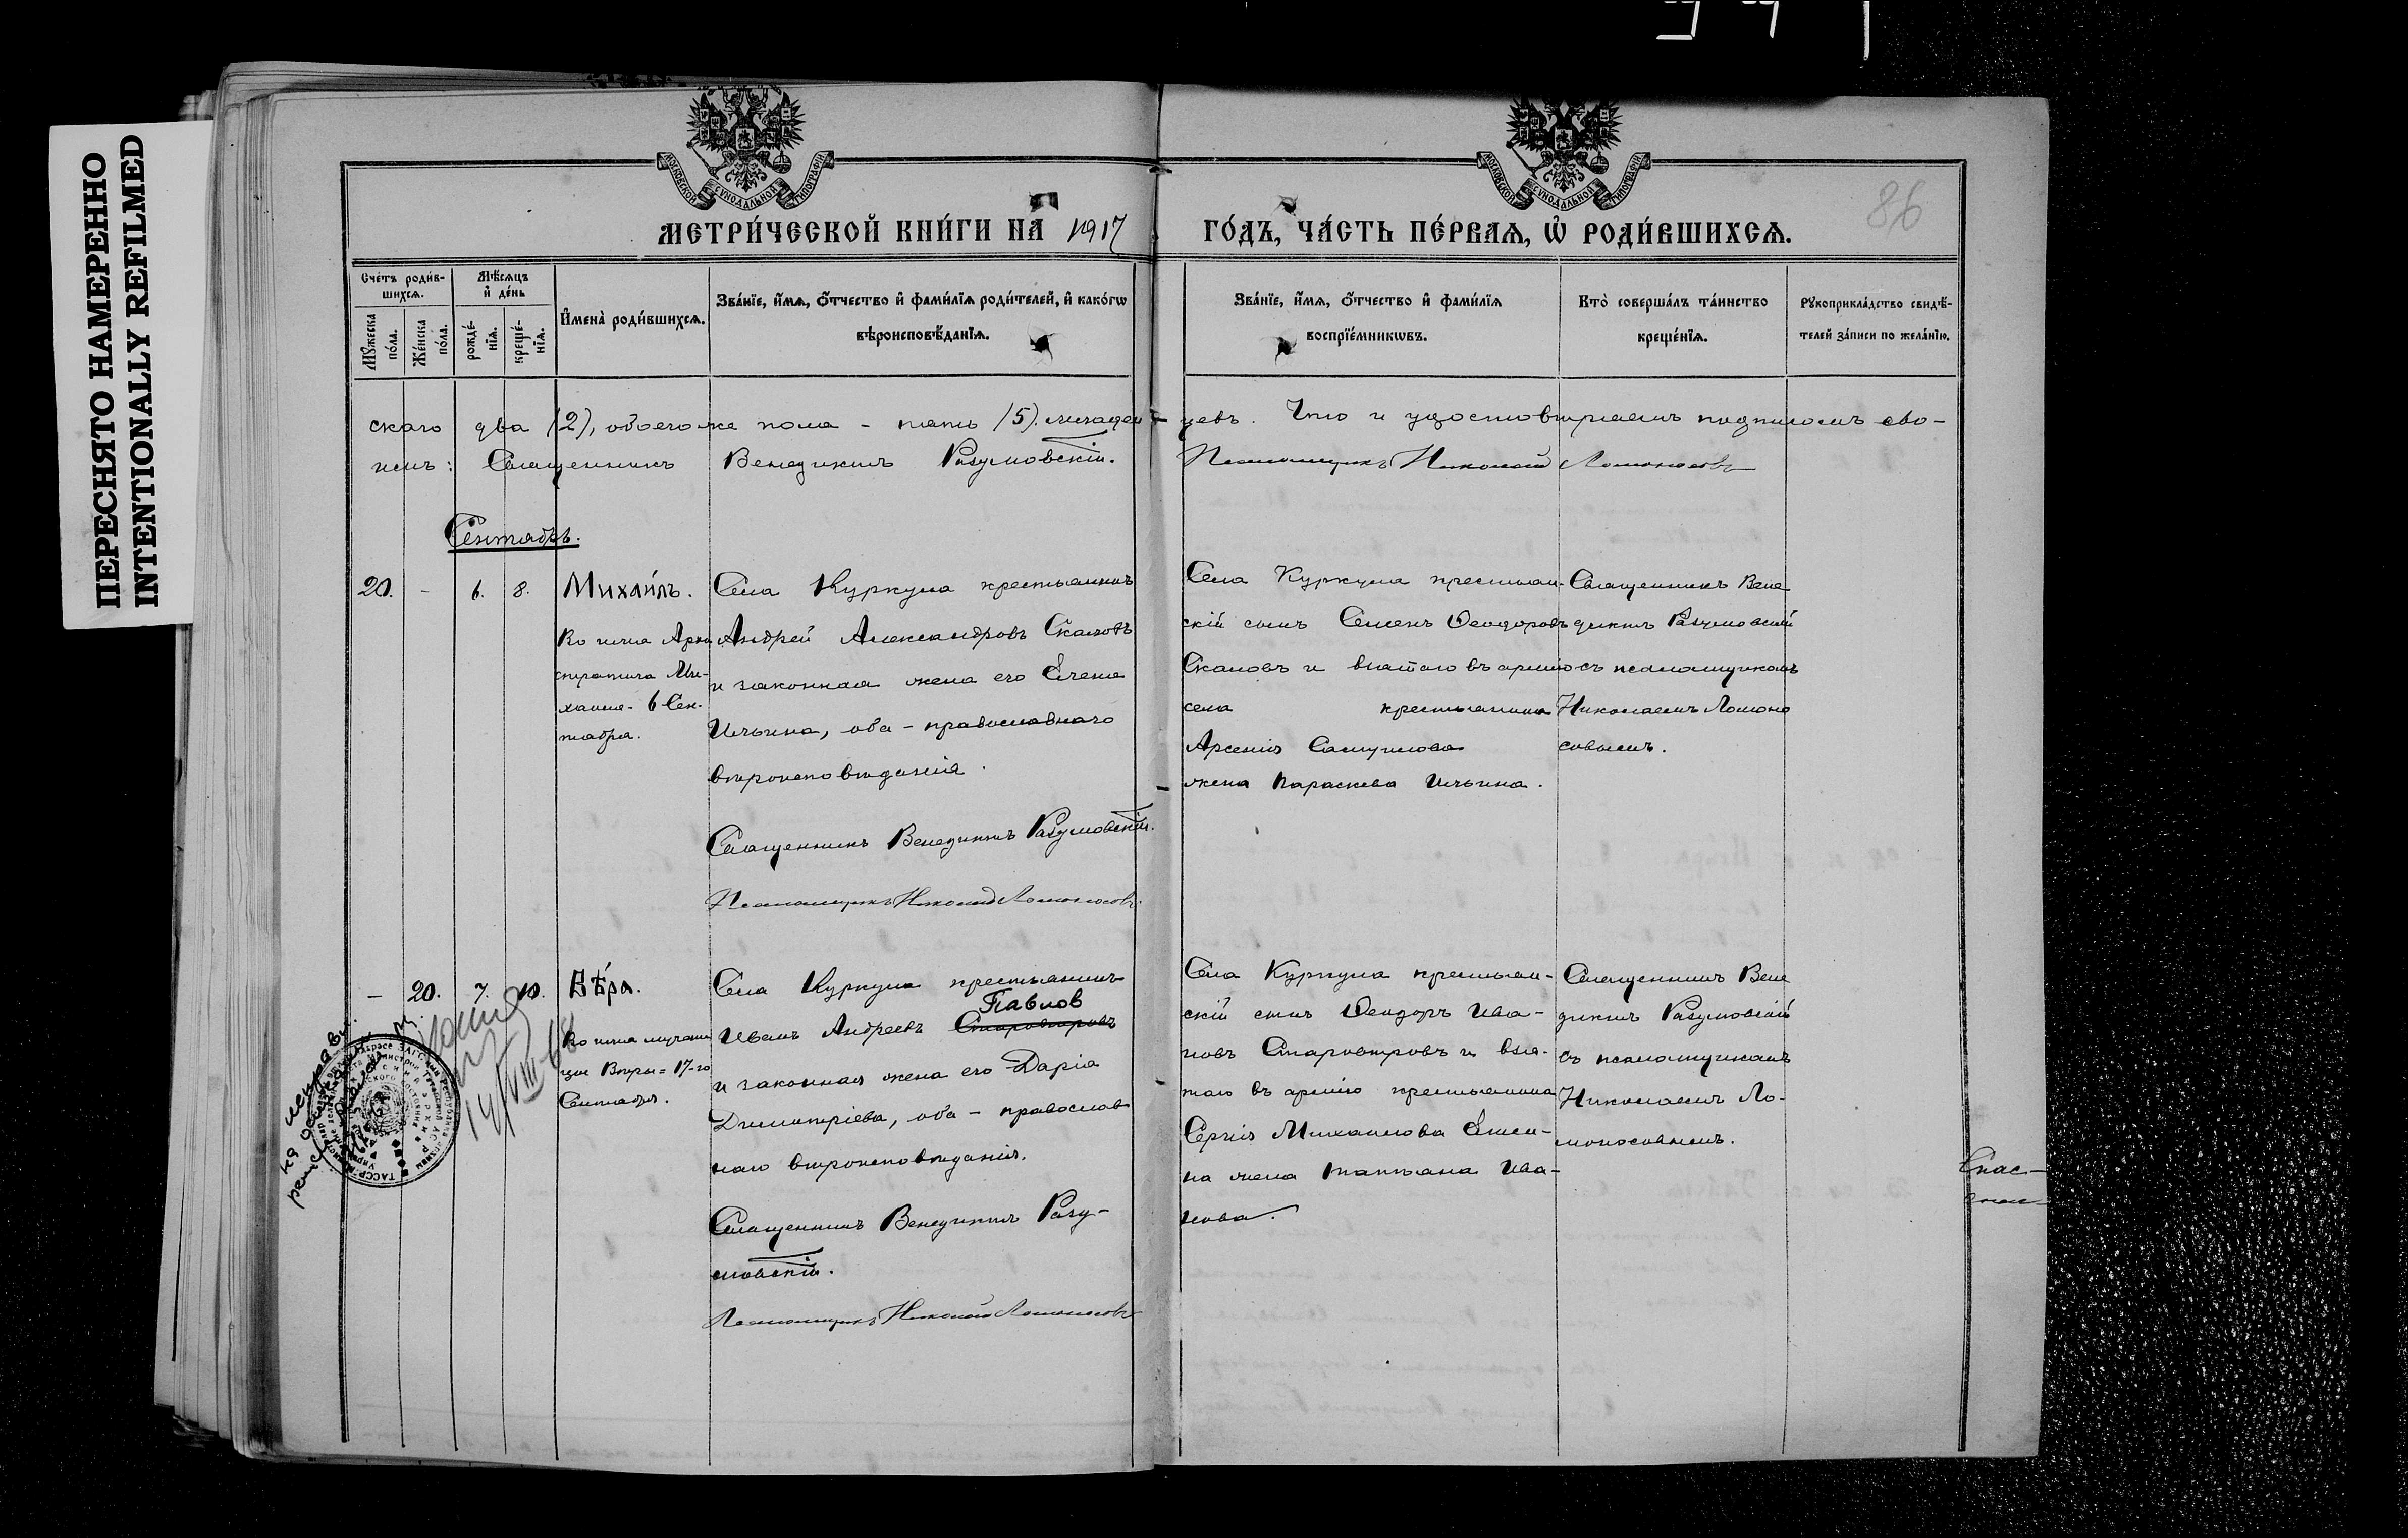 ПЕРЕСНЯТО НАМЕРЕННО
INTENTIONALLY REFILMED
МОСКОВСКОЙ СУНОДАЛЬНОЙ ТИПОГРАФІИ
МОСКОВСКОЙ СУНОДАЛЬНОЙ ТИПОГРАФІИ
86
МЕТРИ́ЧЕСКОЙ КНИ́ГИ НА 1917 ГО́ДЪ, ЧА́СТЬ ПЕ́РВАѦ, Ѡ҆ РОДИ́ВШИХСѦ.
Сче́тъ роди́в-
шихсѧ.
Мѣ́сѧцъ
и҆ де́нь
Мꙋ́жеска
по́ла.
Же́нска
по́ла.
рожде́-
нїѧ.
креще́-
нїѧ.
И҆мена̀ роди́вшихсѧ.
Зва́нїе, и҆́мѧ, ѻ҆́тчество и҆ фами́лїѧ роди́телей, и҆ како́гѡ
вѣроисповѣ́данїѧ.
Зва́нїе, и҆́мѧ, ѻ҆́тчество и҆ фами́лїѧ
воспрїе́мникѡвъ.
Кто̀ соверша́лъ та́инство
креще́нїѧ.
Рꙋкоприкла́дство свидѣ́-
телей за́писи по жела́нїю.
скаго два (2), обоего же пола - пять (5). младен-цевъ. Что и удостовѣряемъ подписомъ сво-
имъ: Священникъ Венедиктъ Разумовскій. Псаломщикъ Николай Ломоносовъ
Сентябрь.
20. - 6. 8. Михаилъ.
Во имя Архи
стратига Ми-
хаила - 6 Сен-
тября.
Села Куркуля крестьянинъ
Андрей Александровъ Скаловъ
и законная жена его Елена
Ильина, оба - православнаго
вѣроисповѣданія.
Священникъ Венедиктъ Разумовскій.
Псаломщикъ Николай Ломоносовъ.
Села Куркуля крестьян-
скій сынъ Семенъ Ѳеодоровъ
Скаловъ и взятаго въ армію
села крестьянина
Арсенія Самуилова
жена Параскева Ильина.
Священникъ Вене
диктъ Разумовскій
съ псаломщикомъ
Николаемъ Ломоно
совымъ.
- 20. 7. 10. Вѣра.
Во имя мучени
цы Вѣры = 17-го
Сентября.
Села Куркуля крестьянинъ
Павлов
Иванъ Андреевъ Старовѣровъ
и законная жена его Дарія
Димитріева, оба - православ
наго вѣроисповѣданія.
Священникъ Венедиктъ Разу-
мовскій.
Псаломщикъ Николай Ломоносовъ
Села Куркуля крестьян-
скій сынъ Ѳеодоръ Ива-
новъ Старовѣровъ и взя-
таго въ армію крестьянина
Сергія Михаилова
на жена Татьяна Ива-
нова.
Священникъ Вене
диктъ Разумовскій
съ псаломщикомъ
Николаемъ Ло-
моносовымъ.
14/VIII-68